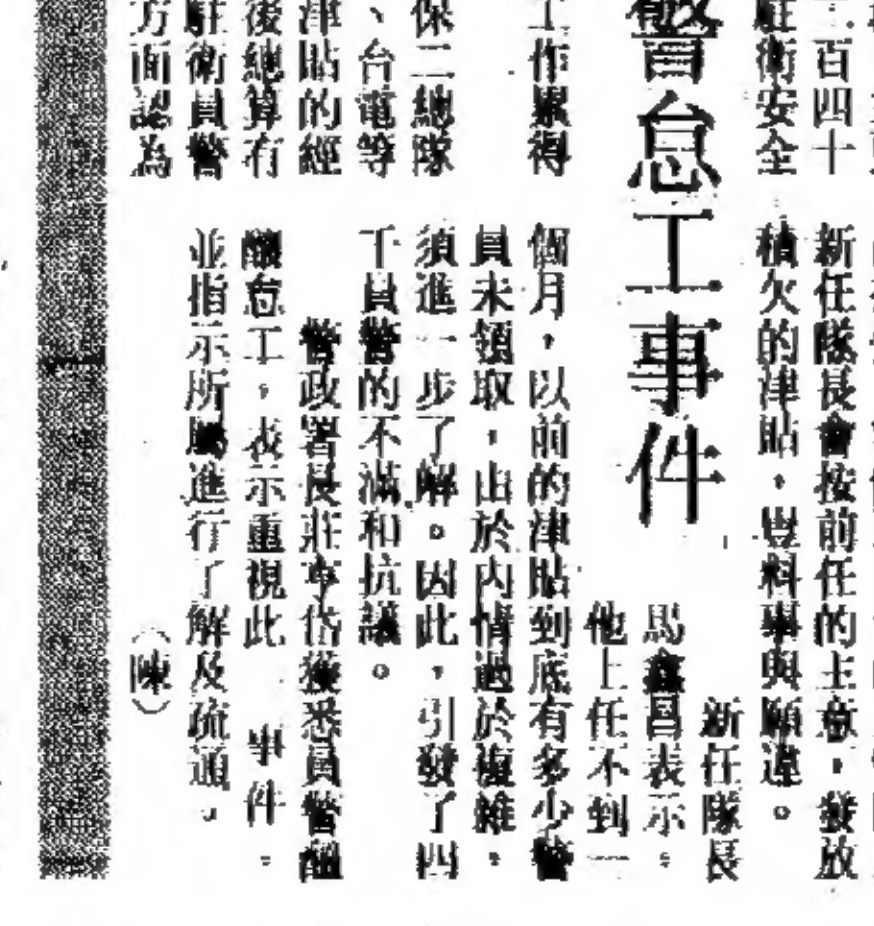 百四十
駐衛安全
警怠工事件
工作累得
保二總隊
、台電等
津貼的經
後總算有
駐衛員警
方面認為
新任隊長會按前任的主意，發放
積欠的津貼，豈料事與願違。
新任隊長
馬鑫昌表示，
他上任不到一
個月，以前的津貼到底有多少警
員未領取，由於內情過於複雜，
須進一步了解。因此，引發了四
千員警的不滿和抗議。
警政署長莊亨岱獲悉員警醞
釀怠工，表示重視此　事件，
並指示所屬進行了解及疏通。
（陳）